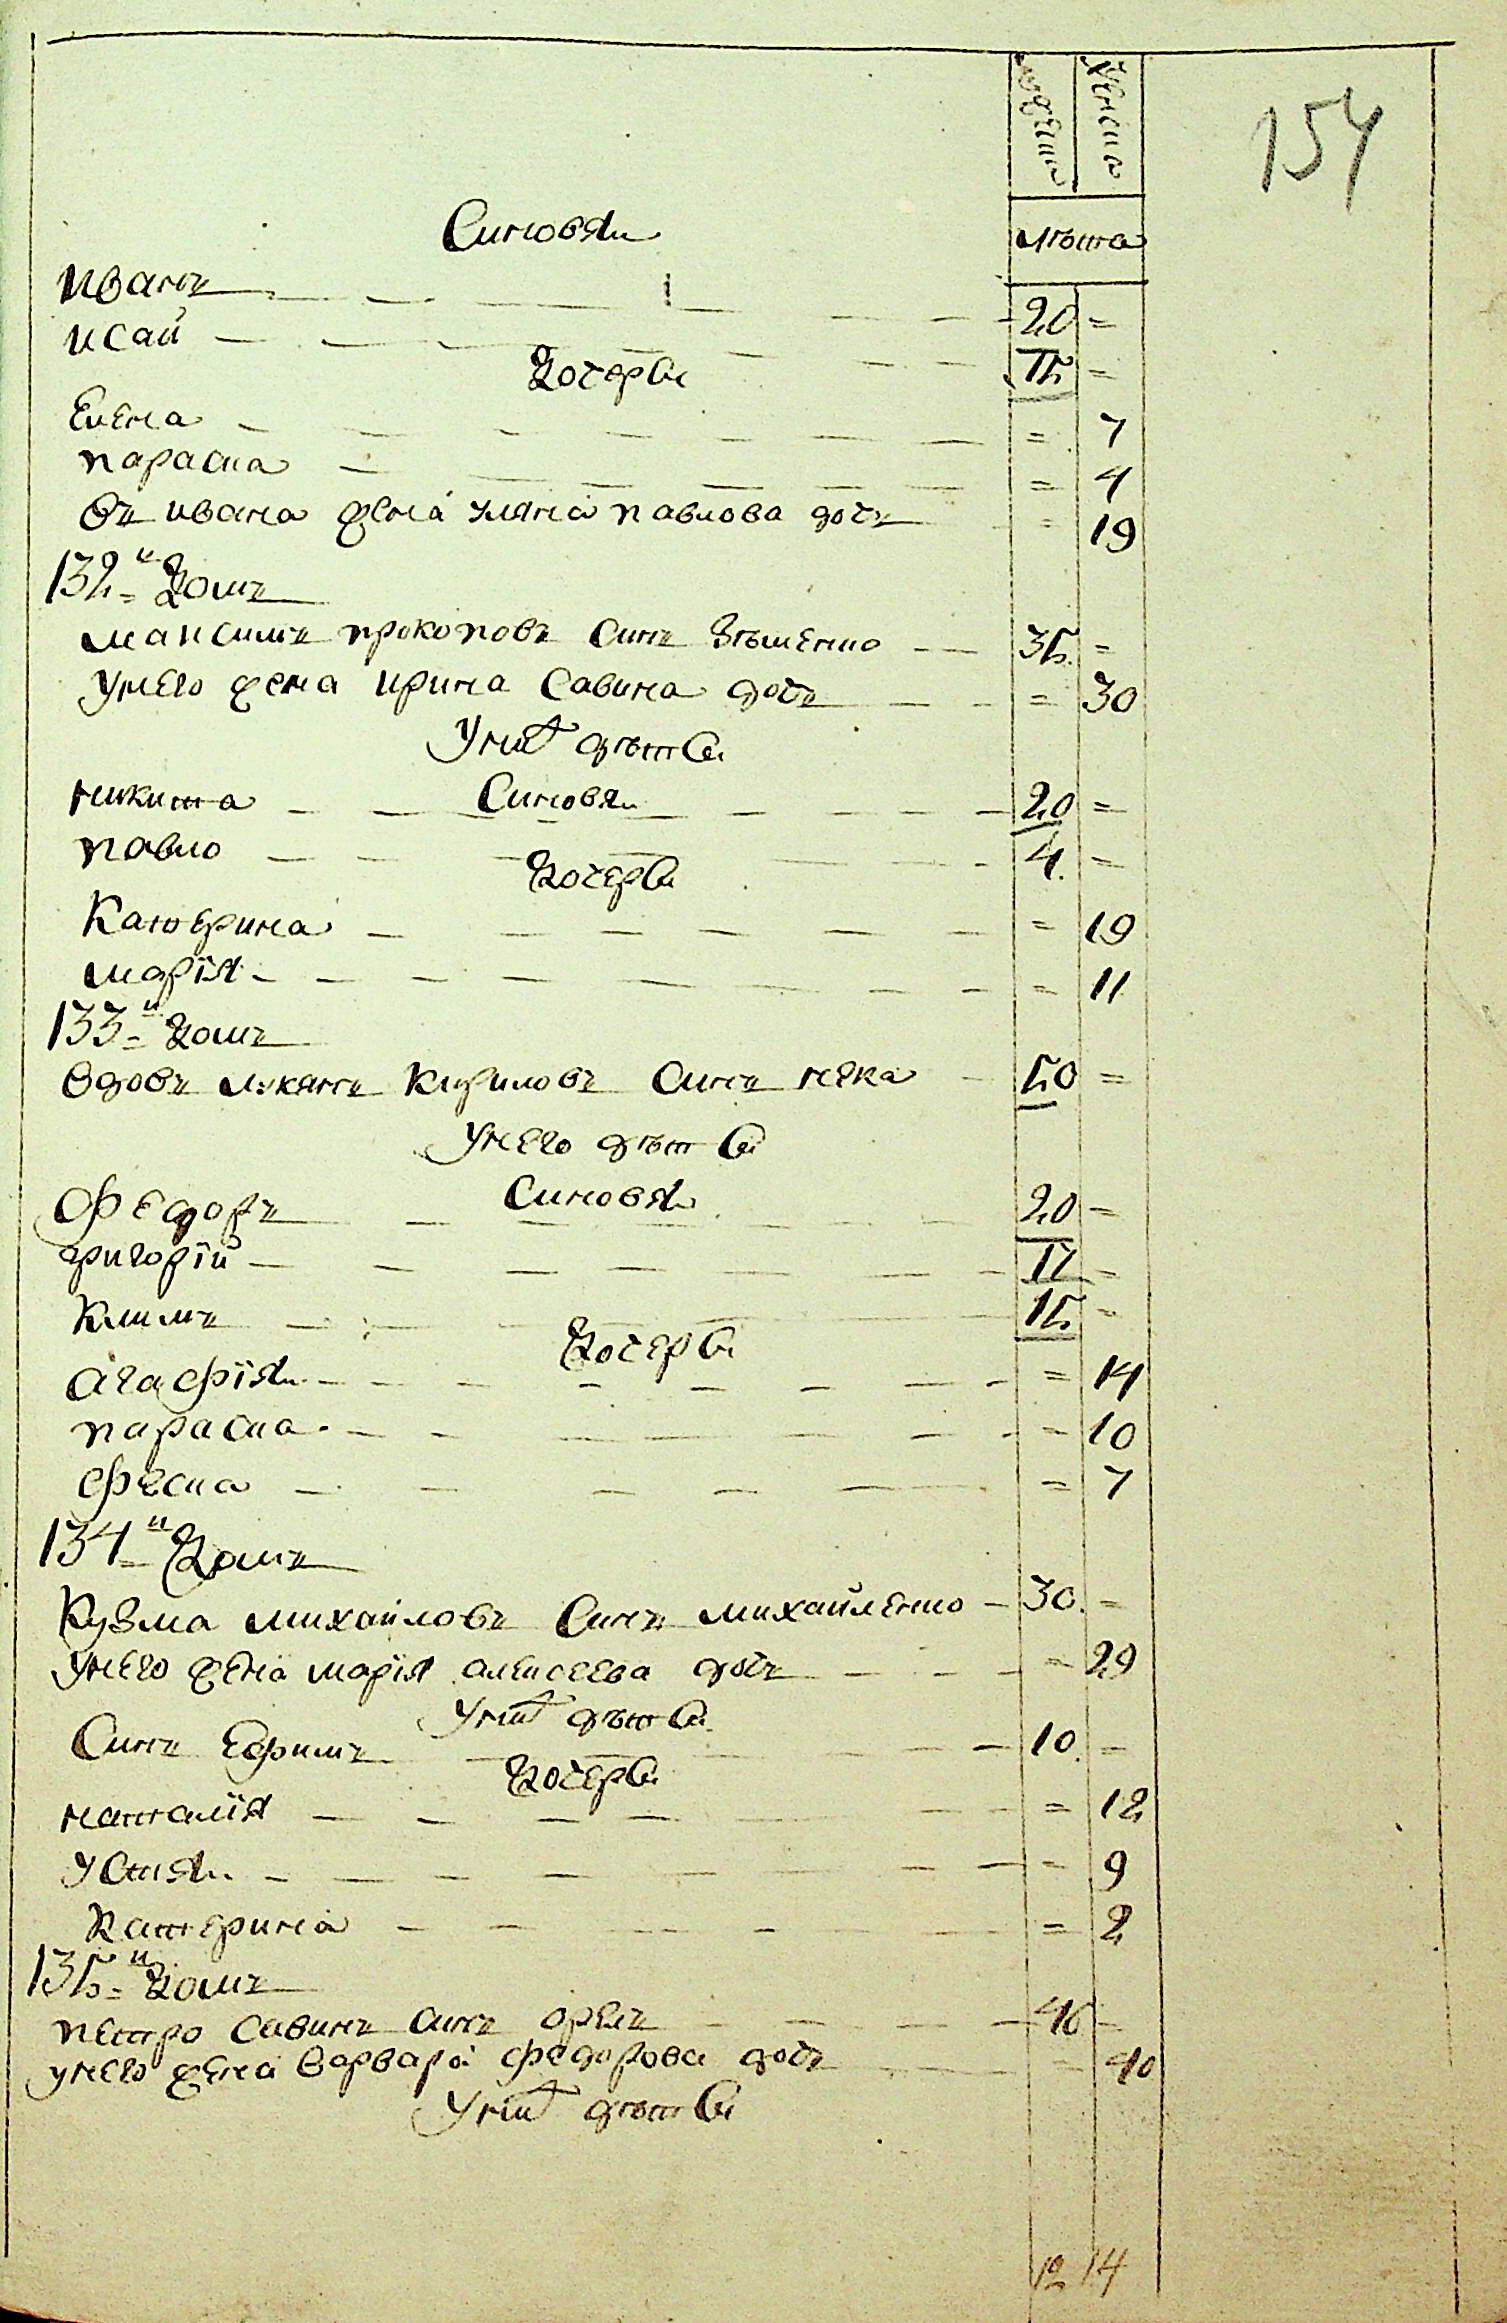 мужеска женска
154
лѣта
Синовя
Иванъ 20 =
Исай 15 =
Дочери
Елена = 7
Параска = 4
Въ Ивана жена Уляна Павлова дочь = 19
132-й Домъ
Максимъ Прокоповъ Синъ 35 =
Унего жена Ирина Савина дочь = 30
Унихъ дѣти
Синовя
Никита 20 =
Павло 4 =
Дочери
Катерина = 19
Марїя = 11
133-й Домъ
Вдовъ Лукянъ Кириловъ Синъ 50 =
Унего дѣти
Синовя
Федоръ 20 =
Григорїй 17 =
Климъ 15 =
Дочери
Агафїя = 14
Параска = 10
Феска = 7
134-й Домъ
Кузма Михайловъ Синъ Михайленко 30 =
Унего жена Марїя Алексеева дочь = 29
Унихъ дѣти
Синъ Ефимъ 10 =
Дочери
Наталїя = 12
Устя = 9
Катерина = 2
135-й Домъ
Петро Савинъ Синъ Орелъ 40 =
Унего жена Варвара Федорова дочь = 40
Унихъ дѣти
12 14